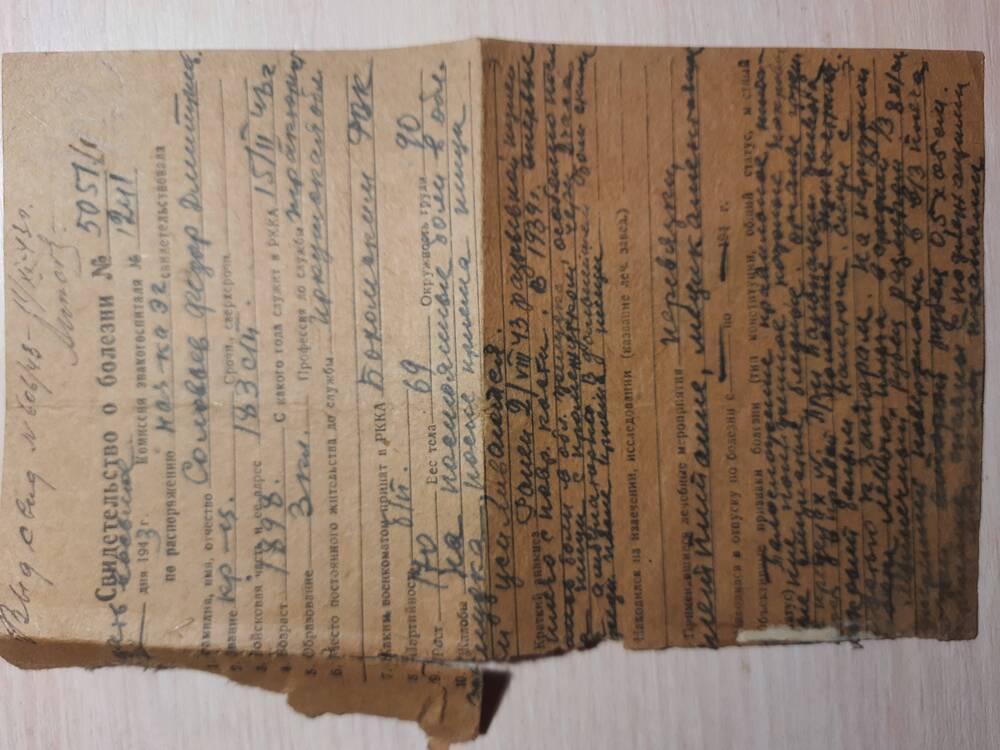 Выд свид № 606/43 - 11/XI-43г.
Свидетельство о болезни № 5051/1
дня 1943 г. Комиссия эвакогоспиталя № 1241
по распоряжению нач-ка ЭГ свидетельствовала
1. Фамилия, имя, отчество Соловьев Федор Дмитриев.
2. Звание кр-ц. Срочн., сверхсрочн.
3. Войсковая часть и ее адрес 183 сп.
4. Возраст 1898. С какого года служит в РККА 15/II 43 г
5. Образование 3 кл. Профессия до службы тракторист
6. Место постоянного жительства до службы Иркутская обл
7. Каким военкоматом принят в РККА Боханским РВК
8. Партийность б/п.
9. Рост 170 Вес тела 69 Окружность груди 90
10. Жалобы На постоянные боли в обл.
желудка, после приема пищи
и усиливаются.
Краткий анамнез Ранен 2/VIII 43 разрывной пулей
плечо с повр. кости. В 1939г. впервые
боли в обл. желудка, особенно после
пищи с промежутком через 2 часа
амбулаторно. В дальнейшем боли стали
после приема пищи
Находился на излечении, исследовании (название леч. завед.)
Применявшиеся лечебные мероприятия перевязки,
питание, медикаментозное
Находился в отпуску по болезни с — по — 194 г.
Объективные признаки болезни (тип конституции, общий статус, местный
статус) Телосложение правильное, пита-
ние пониженное, кожные покровы
бледные. Органы груди
в пределах N. При пальпации живота
в правой половине
белым налетом. Стул с
к запорам. На наружной
левого плеча в средней 1/3
рубец размером 8х1см
поверхности в в/3 плеча
второй рубец 0,5х05см.
спаяны с подлежащими
тканями